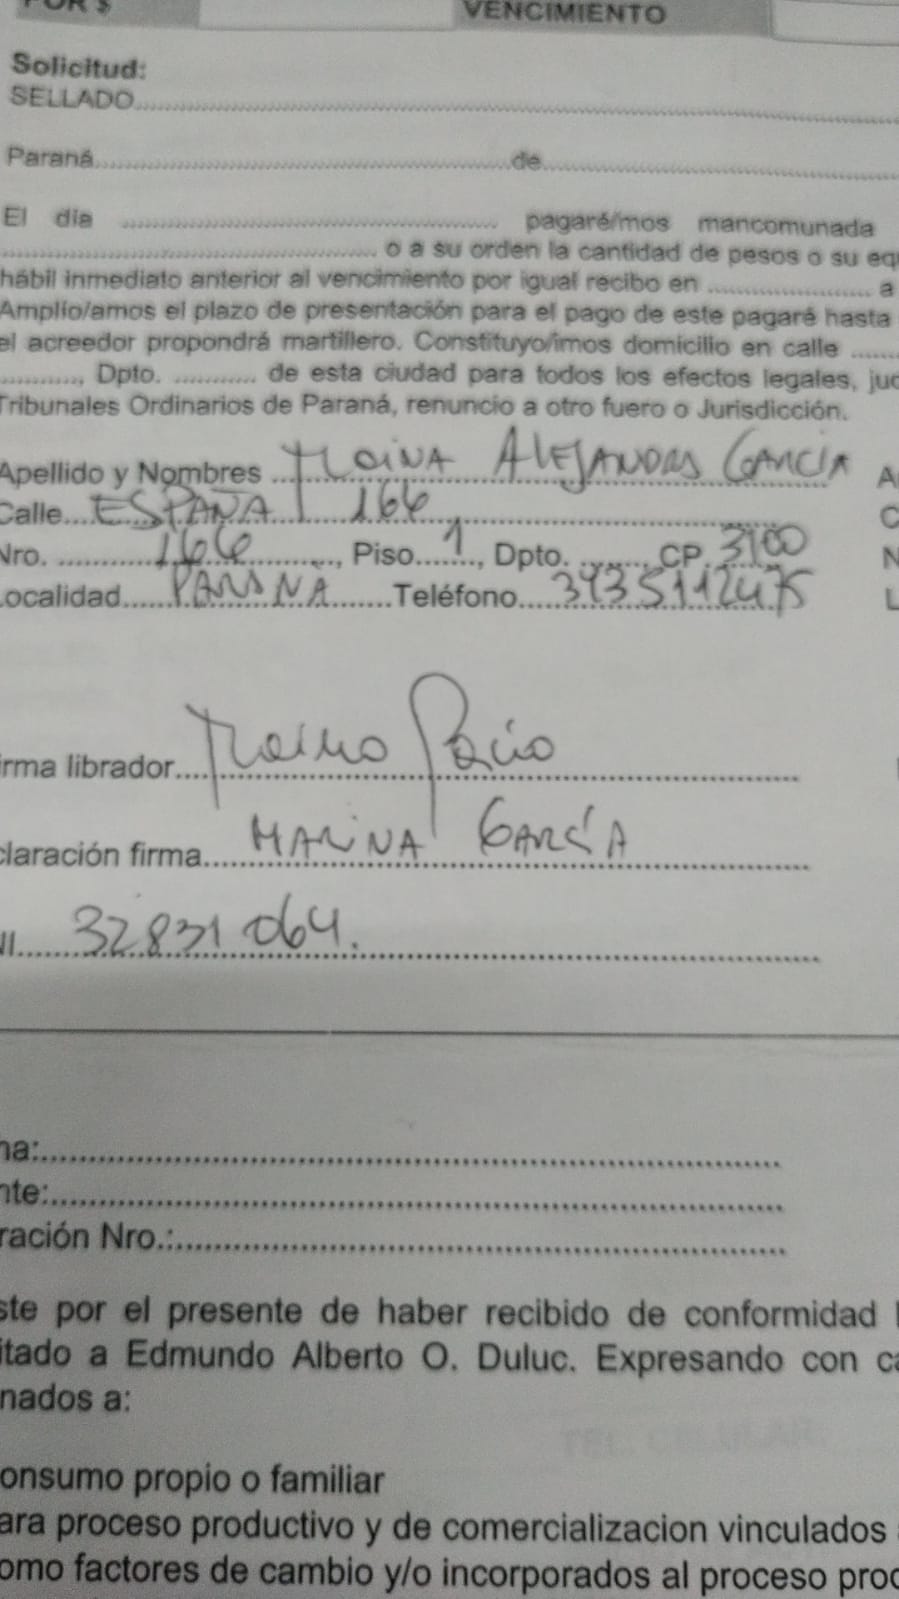 POR $ VENCIMIENTO
Solicitud:
SELLADO
Paraná de
El dia pagaré/mos mancomunada
o a su orden la cantidad de pesos o su equ
hábil inmediato anterior al vencimiento por igual recibo en a
Amplío/amos el plazo de presentación para el pago de este pagaré hasta
el acreedor propondrá martillero. Constituyo/imos domicilio en calle
, Dpto. de esta ciudad para todos los efectos legales, jud
Tribunales Ordinarios de Paraná, renuncio a otro fuero o Jurisdicción.
Apellido y Nombres ALEJANDRA GARCÍA A
Calle ESPAÑA 166 C
Nro. 166, Piso 1, Dpto. , CP. 3100 N
Localidad PARANA Teléfono 3435112475 L
irma librador
claración firma MARINA GARCÍA
NI 32831064.
ha:
nte:
ración Nro.:
ste por el presente de haber recibido de conformidad l
itado a Edmundo Alberto O. Duluc. Expresando con ca
nados a:
onsumo propio o familiar
ara proceso productivo y de comercializacion vinculados
omo factores de cambio y/o incorporados al proceso prod